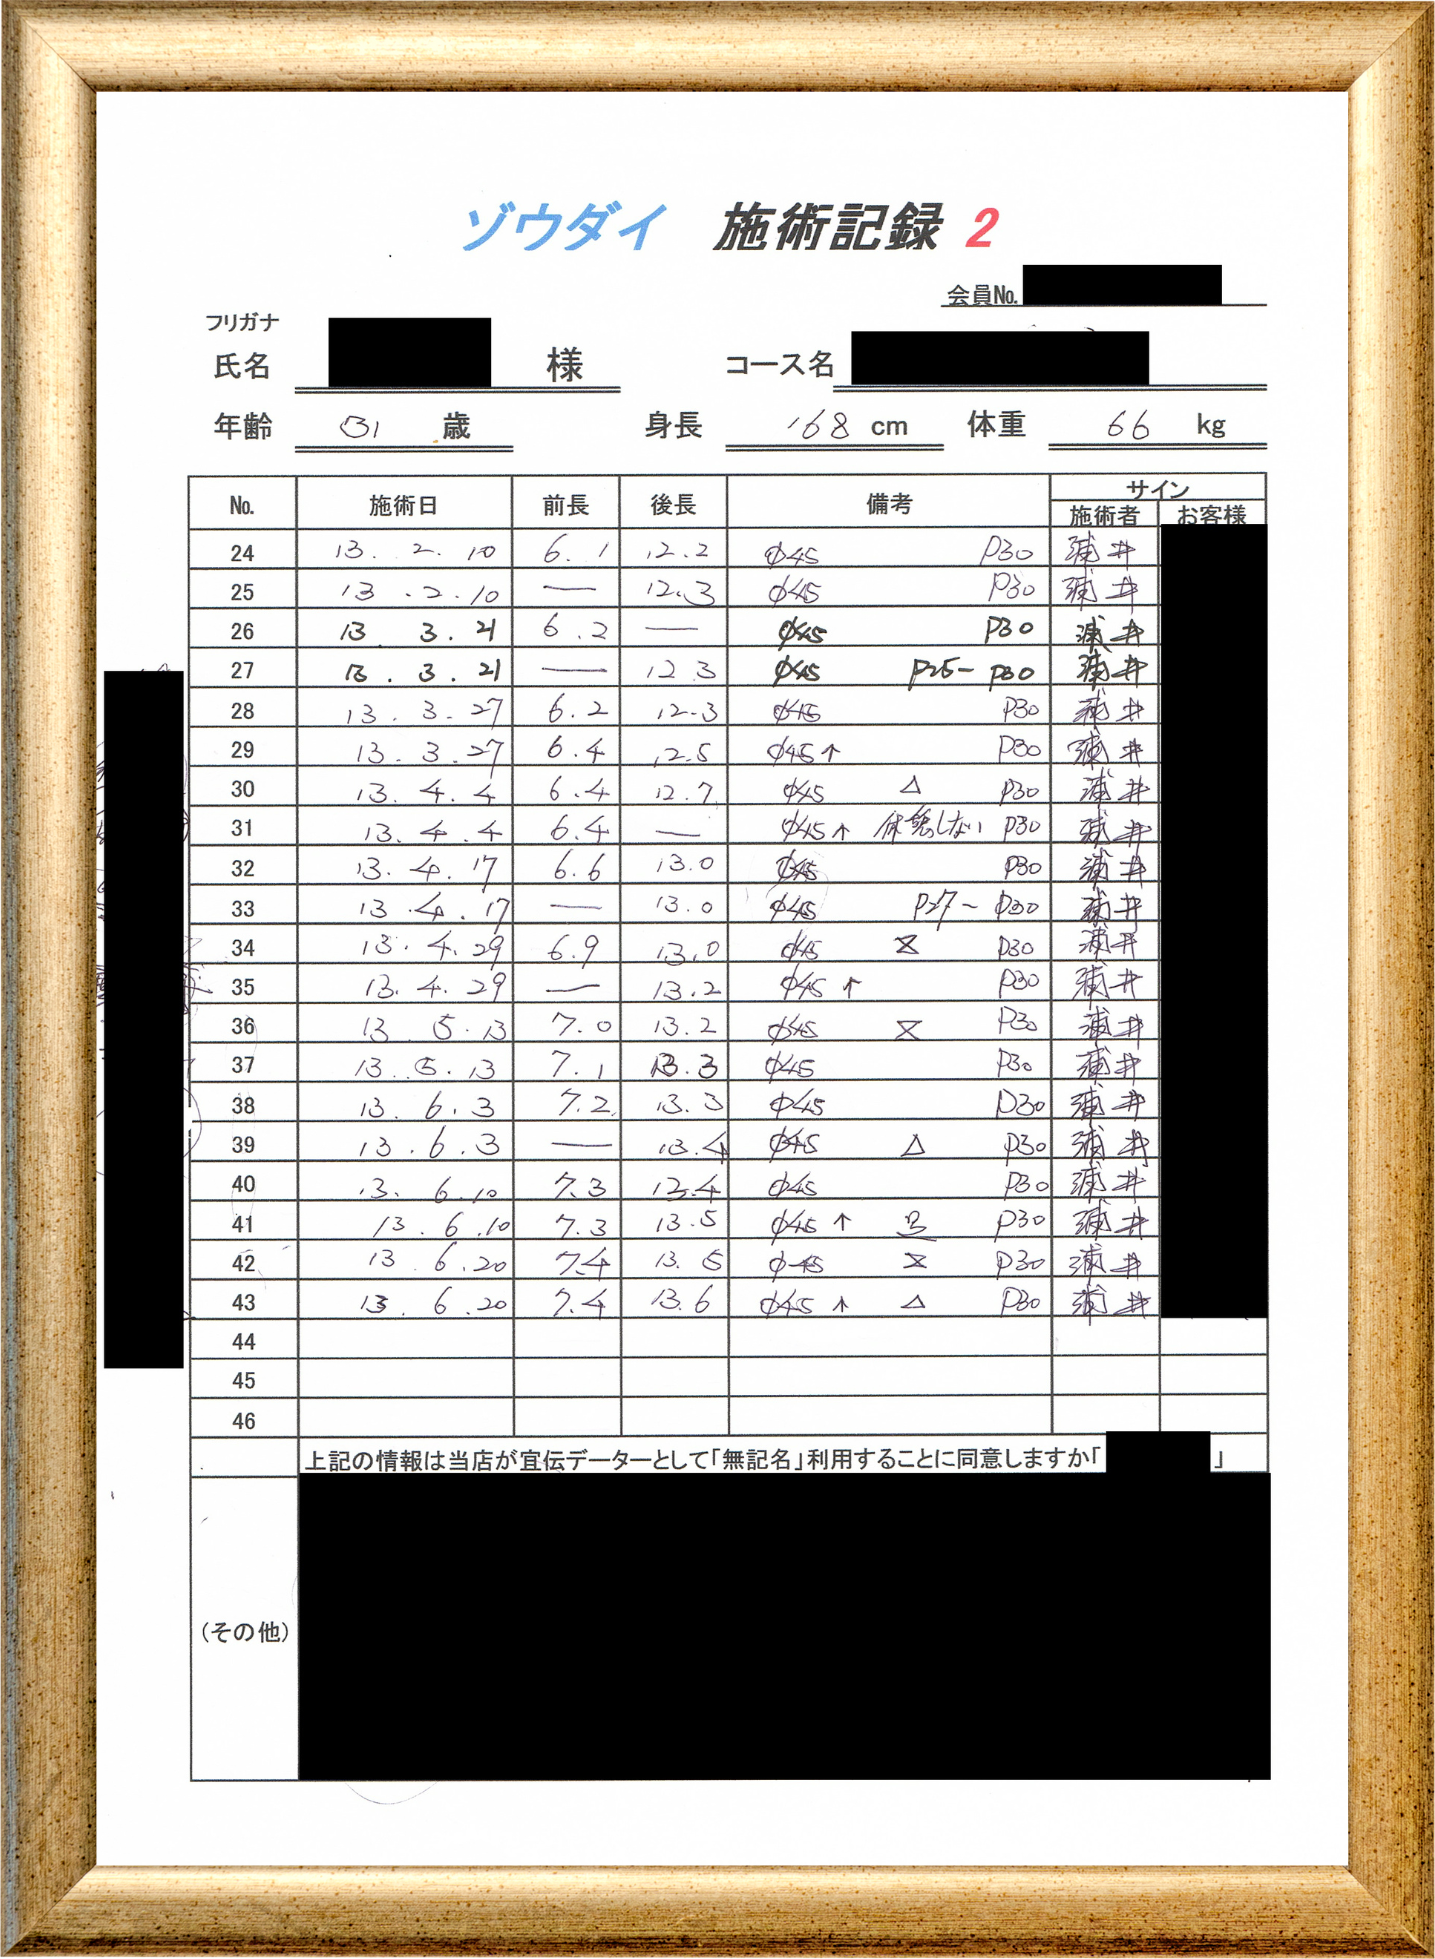 ゾウダイ 施術記録 2
会員No.
フリガナ
氏名 様 コース名
年齢 31 歳 身長 168 cm 体重 66 kg
No. 施術日 前長 後長 備考 サイン
施術者 お客様
24 13. 2. 10 6.1 12.2 φ45 P30 浦井
25 13. 2. 10 — 12.3 φ45 P30 浦井
26 13 3. 21 6.2 — φ45 P30 浦井
27 13. 3. 21 — 12.3 φ45 P25~P30 浦井
28 13. 3. 27 6.2 12.3 φ45 P30 浦井
29 13. 3. 27 6.4 12.5 φ45↑ P30 浦井
30 13. 4. 4 6.4 12.7 φ45 △ P30 浦井
31 13. 4. 4 6.4 — φ45↑ しない P30 浦井
32 13. 4. 17 6.6 13.0 φ45 P30 浦井
33 13. 4. 17 — 13.0 φ45 P27~P30 浦井
34 13. 4. 29 6.9 13.0 φ45 P30 浦井
35 13. 4. 29 — 13.2 φ45↑ P30 浦井
36 13 5. 13 7.0 13.2 φ45 P30 浦井
37 13. 5. 13 7.1 13.3 φ45 P30 浦井
38 13. 6. 3 7.2 13.3 φ45 P30 浦井
39 13. 6. 3 — 13.4 φ45 △ P30 浦井
40 13. 6. 10 7.3 13.4 φ45 P30 浦井
41 13. 6. 10 7.3 13.5 φ45↑ P30 浦井
42 13 6. 20 7.4 13.5 φ45 P30 浦井
43 13. 6. 20 7.4 13.6 φ45↑ △ P30 浦井
44
45
46
上記の情報は当店が宣伝データーとして「無記名」利用することに同意しますか「 」
(その他)